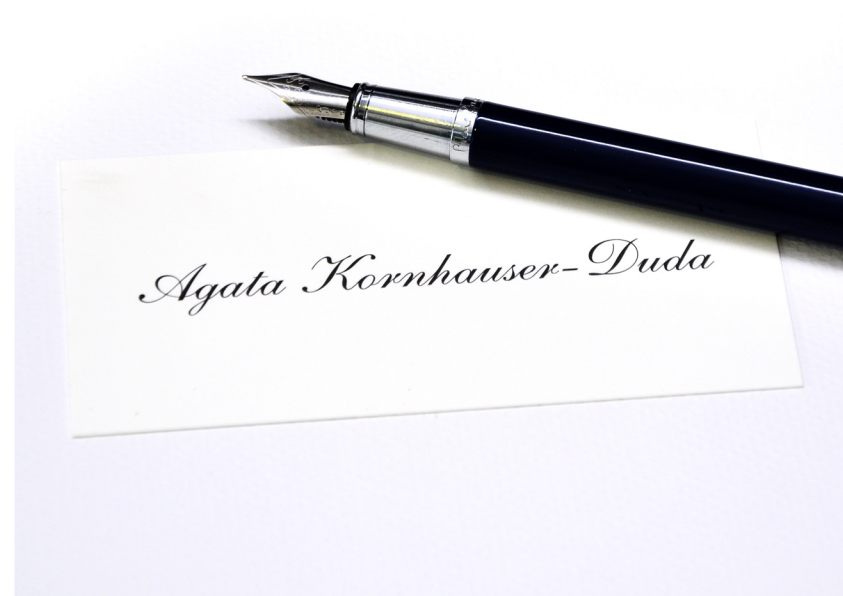 Agata Kornhauser-Duda